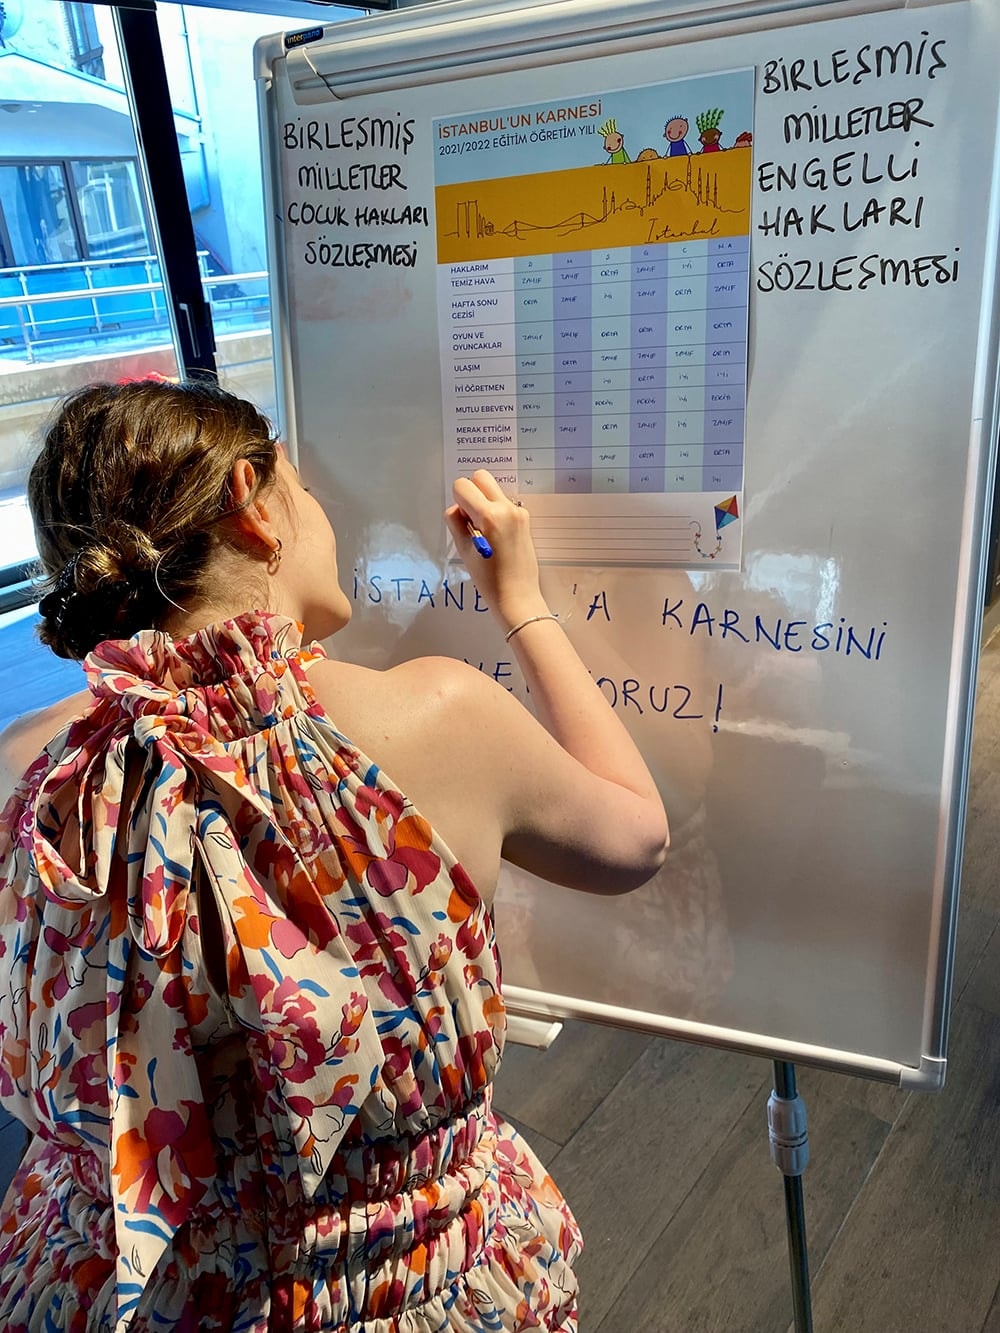 interpano
BİRLEŞMİŞ
MİLLETLER
ÇOCUK HAKLARI
SÖZLEŞMESİ
İSTANBUL'UN KARNESİ
2021/2022 EĞİTİM ÖĞRETİM YILI
İstanbul
BİRLEŞMİŞ
MİLLETLER
ENGELLİ
HAKLARI
SÖZLEŞMESİ
HAKLARIM
TEMİZ HAVA ZAYIF ZAYIF ORTA ZAYIF İYİ ORTA
HAFTA SONU
GEZİSİ ORTA ZAYIF İYİ ZAYIF ORTA ZAYIF
OYUN VE
OYUNCAKLAR ZAYIF ZAYIF ORTA ORTA ORTA ORTA
ULAŞIM ZAYIF ORTA ZAYIF ORTA ZAYIF ORTA
İYİ ÖĞRETMEN ORTA İYİ İYİ ORTA İYİ İYİ
MUTLU EBEVEYN PEKİYİ İYİ PEKİYİ PEKİYİ İYİ PEKİYİ
MERAK ETTİĞİM
ŞEYLERE ERİŞİM ZAYIF ZAYIF ORTA ZAYIF İYİ ZAYIF
ARKADAŞLARIM İYİ İYİ ZAYIF ORTA İYİ ORTA
İYİ İYİ İYİ İYİ İYİ İYİ
İSTAN 'A KARNESİNİ
ORUZ!